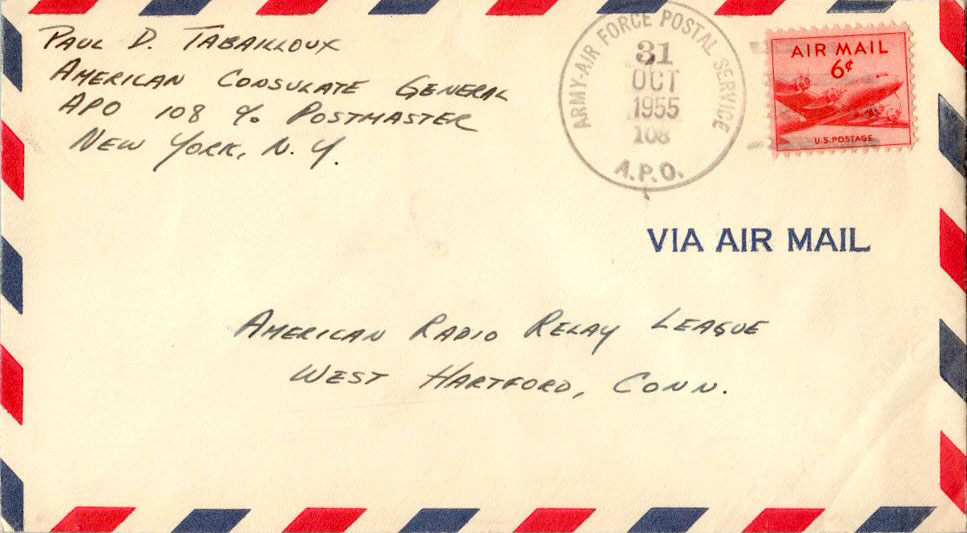 PAUL D. TABAILLOUX
AMERICAN CONSULATE GENERAL
APO 108 % POSTMASTER
NEW YORK, N.Y.
ARMY-AIR FORCE POSTAL SERVICE
31
OCT
1955
108
A.P.O.
AIR MAIL
6¢
U.S. POSTAGE
VIA AIR MAIL
AMERICAN RADIO RELAY LEAGUE
WEST HARTFORD, CONN.